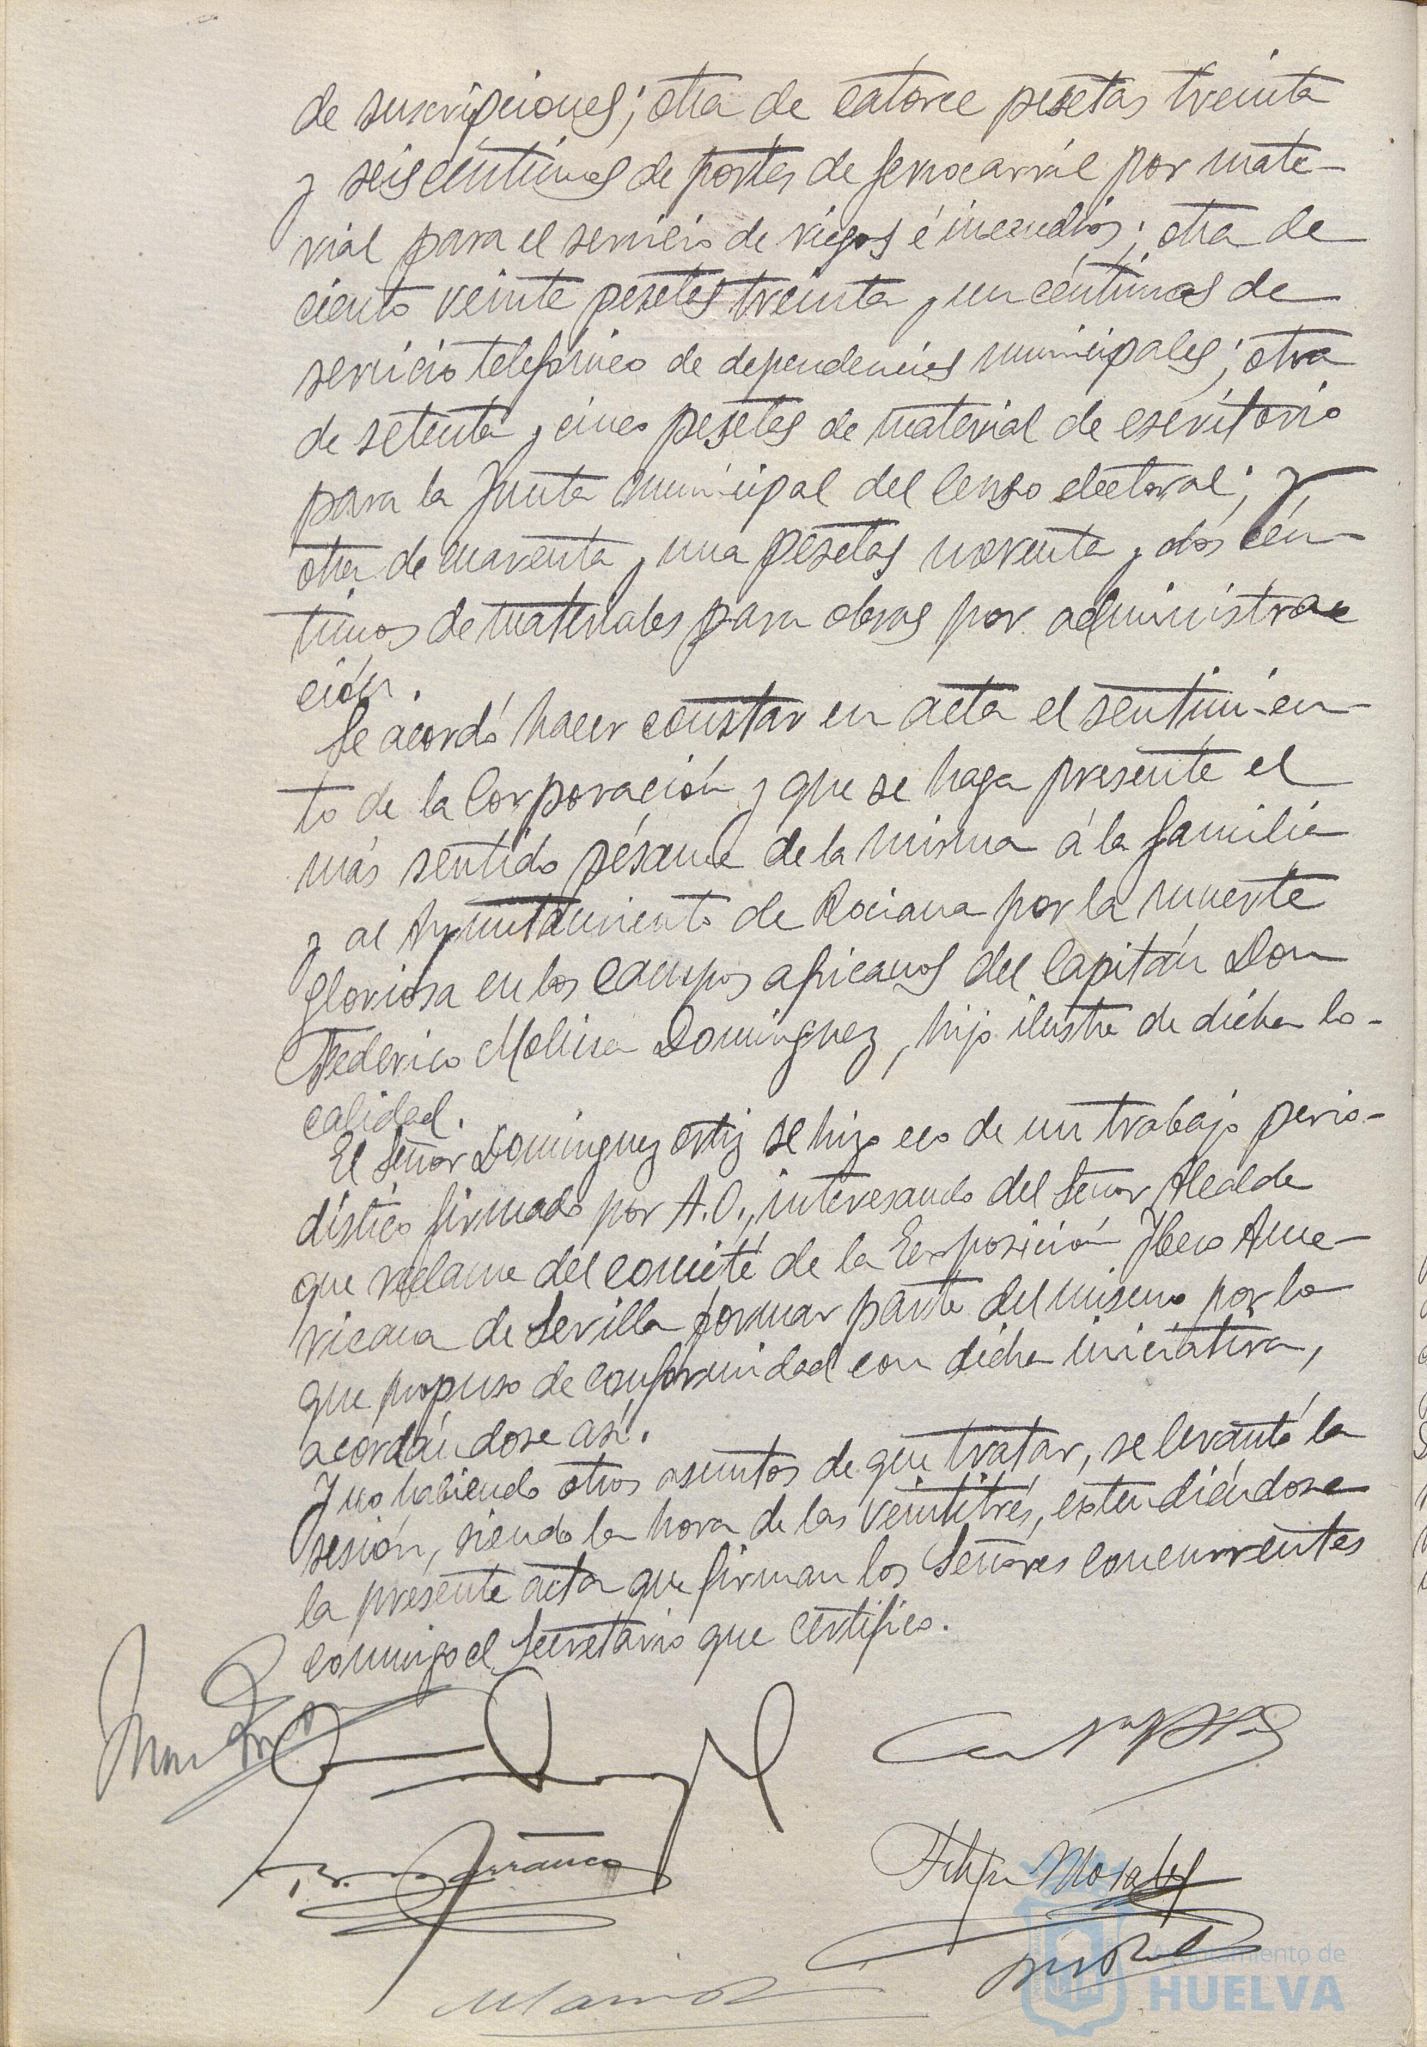 de suscripciones; otra de catorce pesetas treinta
y seis céntimos de portes de ferrocarril por mate-
rial para el servicio de riegos é incendios; otra de
ciento veinte pesetas treinta y un céntimos de
servicio telefónico de dependencias municipales; otra
de setenta y cinco pesetas de material de escritorio
para la Junta municipal del Censo electoral; y
otra de cuarenta y una pesetas noventa y dos cén-
timos de materiales para obras por administra-
ción.
Se acordó hacer constar en acta el sentimien-
to de la Corporación y que se haga presente el
más sentido pésame de la misma á la familia
y al Ayuntamiento de Rociana por la muerte
gloriosa en los campos africanos del Capitán Don
Federico Molina Dominguez, hijo ilustre de dicha lo-
calidad.
El Señor Dominguez Ortiz se hizo eco de un trabajo perio-
dístico firmado por A.O., interesando del Señor Alcalde
que reclame del comité de la Exposición Ibero Ame-
ricana de Sevilla formar parte del mismo por lo
que propuso de conformidad con dicha iniciativa,
acordándose así.
Y no habiendo otros asuntos de que tratar, se levantó la
sesión, siendo la hora de las veintitrés, extendiéndose
la presente acta que firman los Señores concurrentes
conmigo el Secretario que certifico.
Felipe Morales
Ayuntamiento de
HUELVA